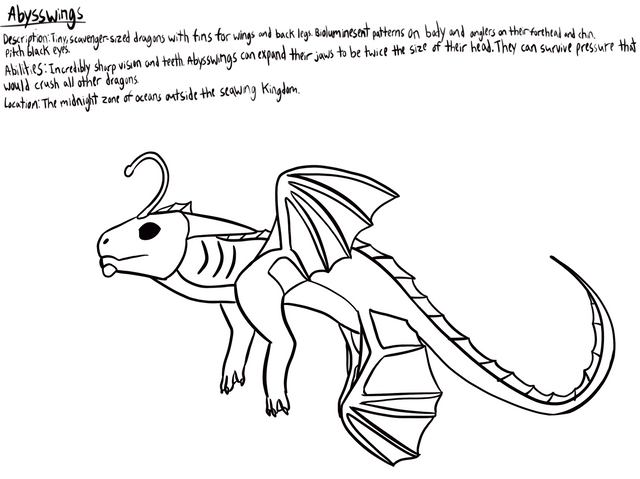 Abysswings
Description: Tiny, scavenger-sized dragons with fins for wings and back legs. Bioluminesent patterns on body and anglers on their forehead and chin.
Pitch black eyes.
Abilities: Incredibly sharp vision and teeth. Abysswings can expand their jaws to be twice the size of their head. They can survive pressure that
would crush all other dragons.
Location: The midnight zone of oceans outside the seawing Kingdom.